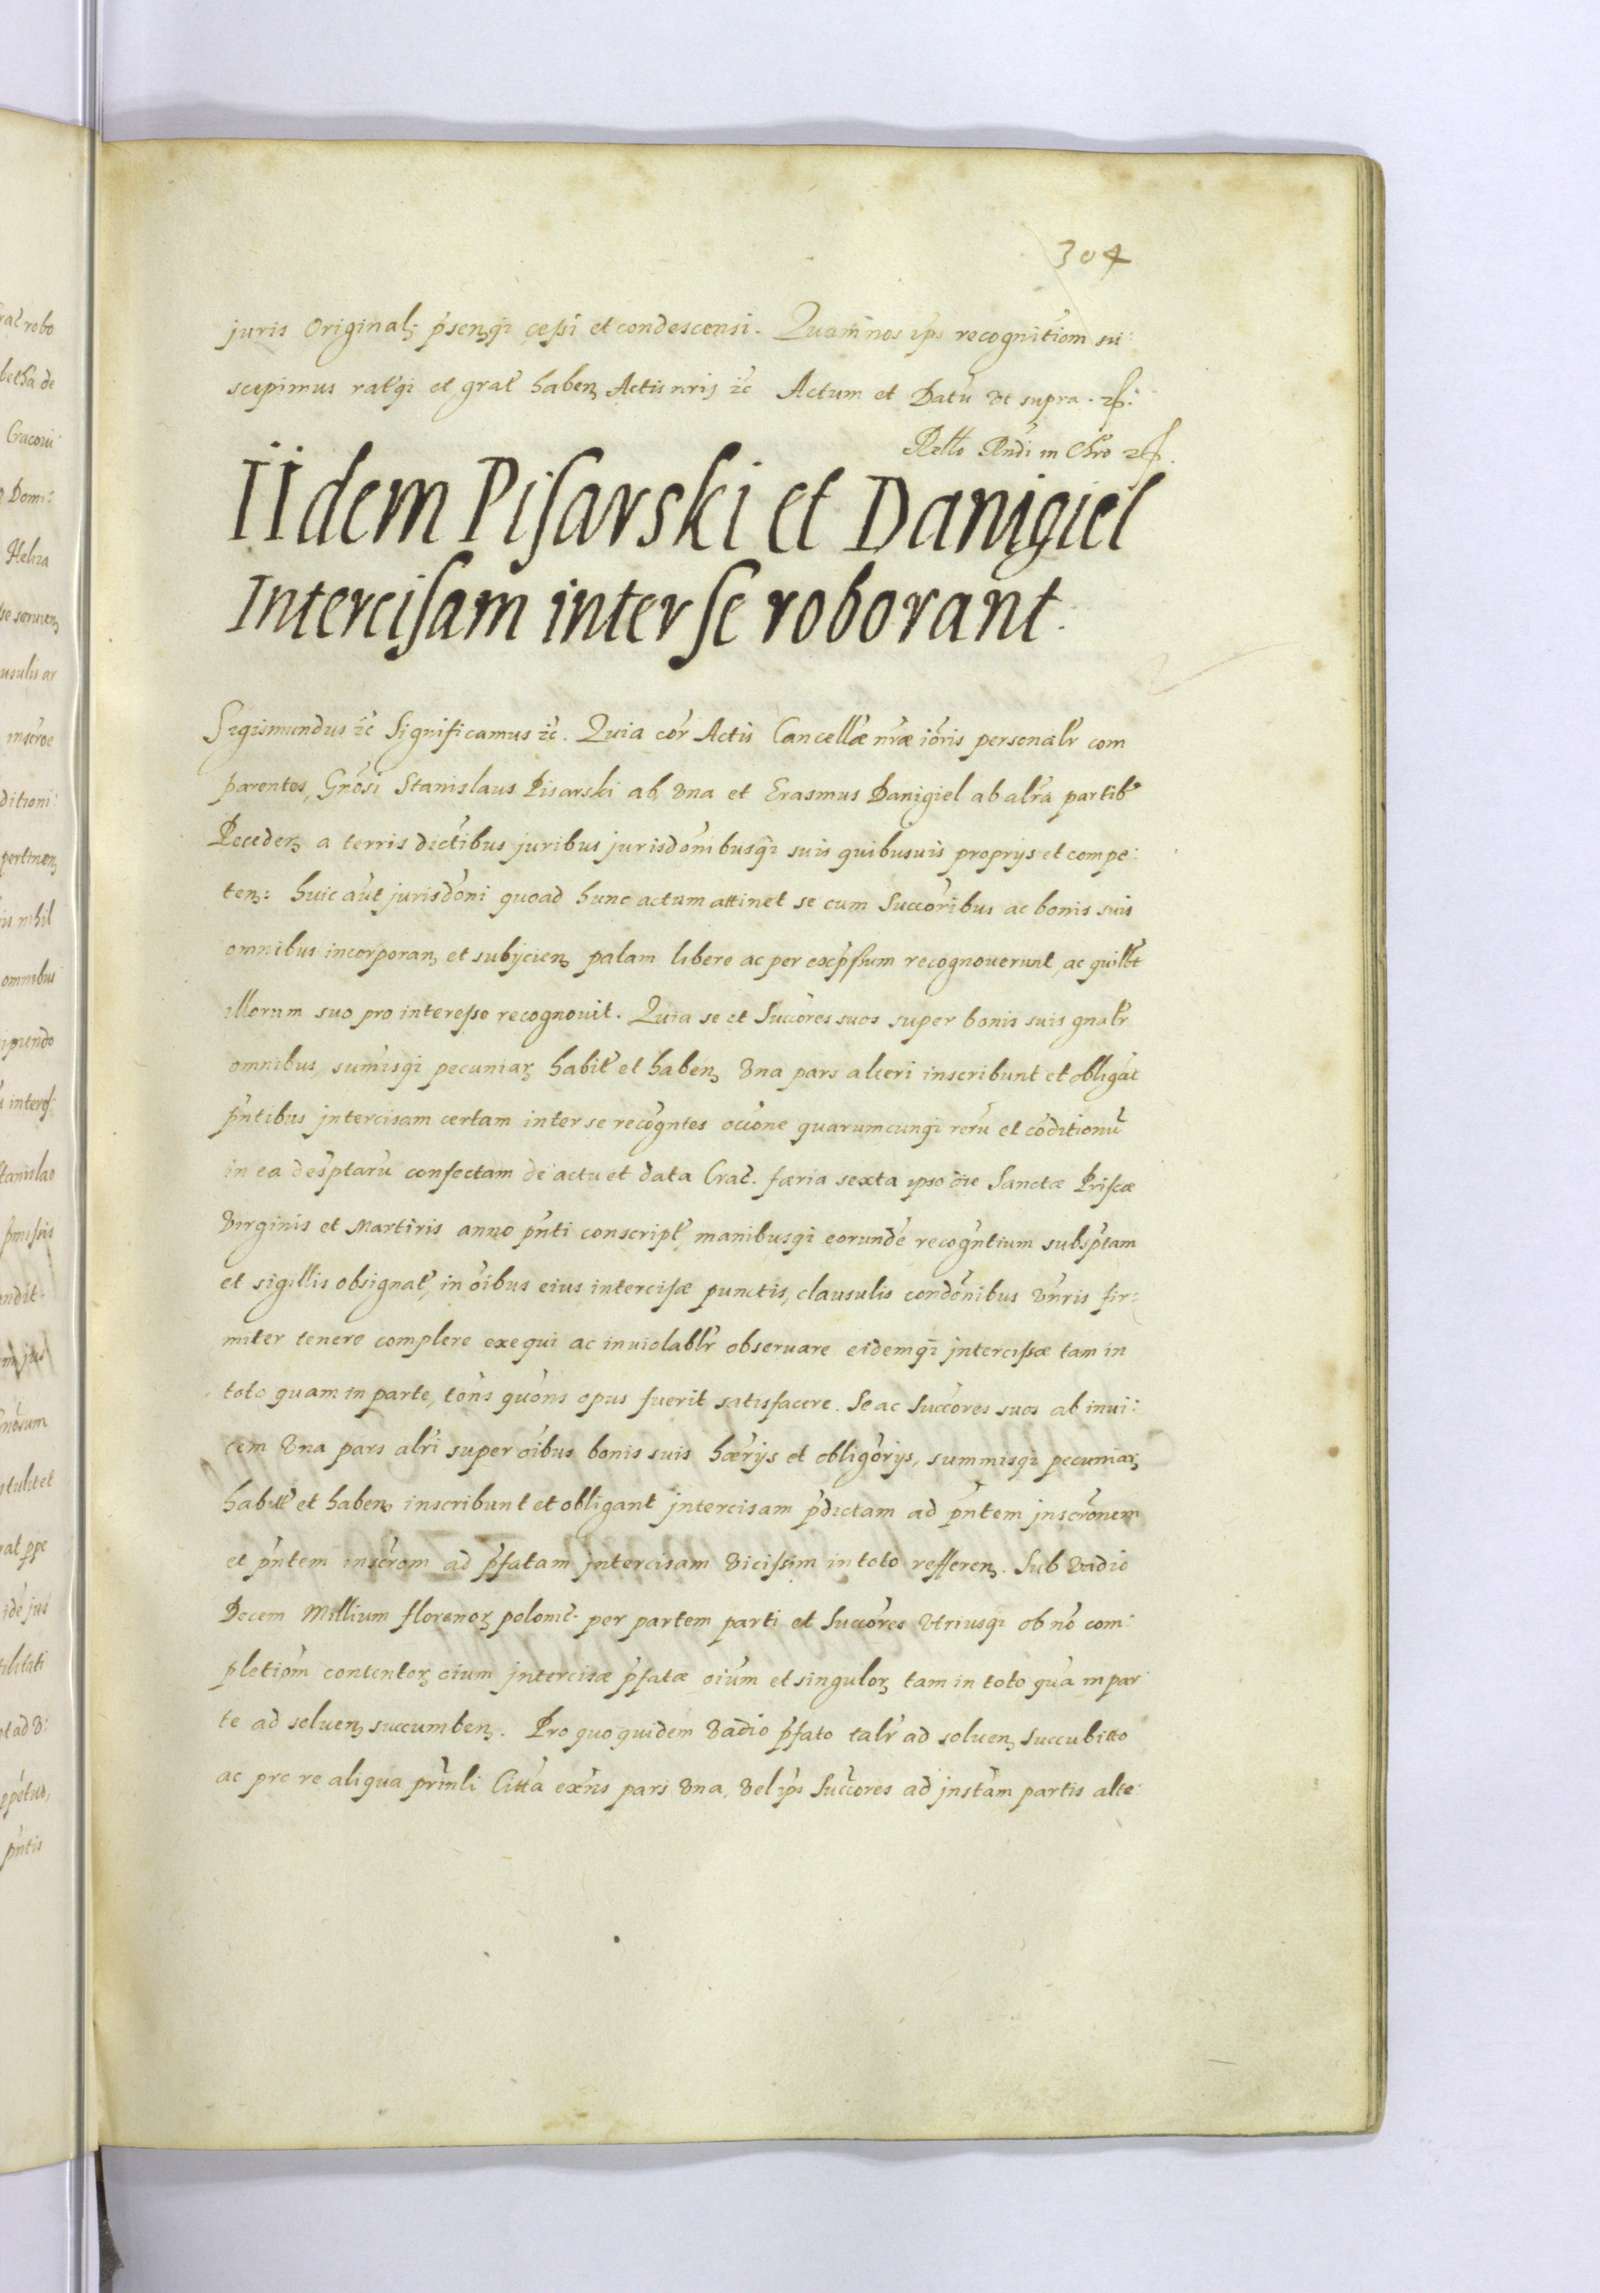 304
juris Original; p̃senq̃ȝ cessi et condescensi. Quam nos ip̃s recognitiom su:
scepimus rat̃qȝ et grat̃ habenȝ Actis nris ꝛc̃ Actum et Datũ vt supra.
Rltto Rndi in Chro
IIdem Pisarski et Danigiel
Intercisam inter se roborant.
Sigismundus ꝛc̃ Significamus ꝛc̃. Quia cor̃ Actis Cancell̃æ nr̃æ ior̃is personalr̃ com
parentes, Gñosi Stanislaus Pisarski ab vna et Erasmus Danigiel ab alr̃a partib9
Recedenȝ a terris dictĩbus juribus jurisdõnibusqȝ suis quibusuis proprijs et compe:
tenȝ: huic aũt jurisdõni quoad hunc actum attinet se cum Succõribus ac bonis suis
omnibus incorporanȝ et subijcienȝ palam libere ac per exp̃ssum recognouerunt, ac quill̃t
illorum suo pro interesse recognouit. Quia se et Succõres suos super bonis suis gnalr̃
omnibus, sum̃isqȝ pecuniarȝ habit̃ et habenȝ vna pars alteri inscribunt et obligãt
p̃ntibus intercisam certam inter se recõgntes occõne quarumcunqȝ rerũ et cõditionũ
in ea des̃ptarũ confectam de actu et data Crac̃. færia sexta ipso die Sanctæ Priscæ
Virginis et Martiris anno p̃nti conscript̃, manibusqȝ eorundẽ recogñtium subsp̃tam
et sigillis obsignat̃, in õibus eius intercisæ punctis, clausulis condõnibus vñris fir:
miter tenere complere exequi ac inuiolablr̃ obseruare eidemqȝ jntercisæ tam in
toto quam in parte, tõns quõns opus fuerit satisfacere. Se ac Succõres suos ab inui:
cem vna pars alr̃i super õibus bonis suis hærijs et obligõrijs, summisqȝ pecuniarȝ
habit̃ et habenȝ inscribunt et obligant jntercisam p̃dictam ad p̃ntem jnscrõnem
et p̃ntem inscrõm ad p̃fatam jntercisam vicissim in toto refferenȝ. Sub vadio
Decem Millium florenorȝ polonic̃. per partem parti et Succõres vtriusqȝ ob nõ com:
pletiõm contentorȝ eium jntercisæ p̃fatæ oiũm et singulorȝ tam in toto quã in par
te ad soluenȝ succumbenȝ. Pro quo quidem vadio p̃fato talr̃ ad soluenȝ succubitto
ac pro re aliqua prĩnli Citt̃a exñs pars vna, vel ip̃s Succõres ad jnstãm partis alte: